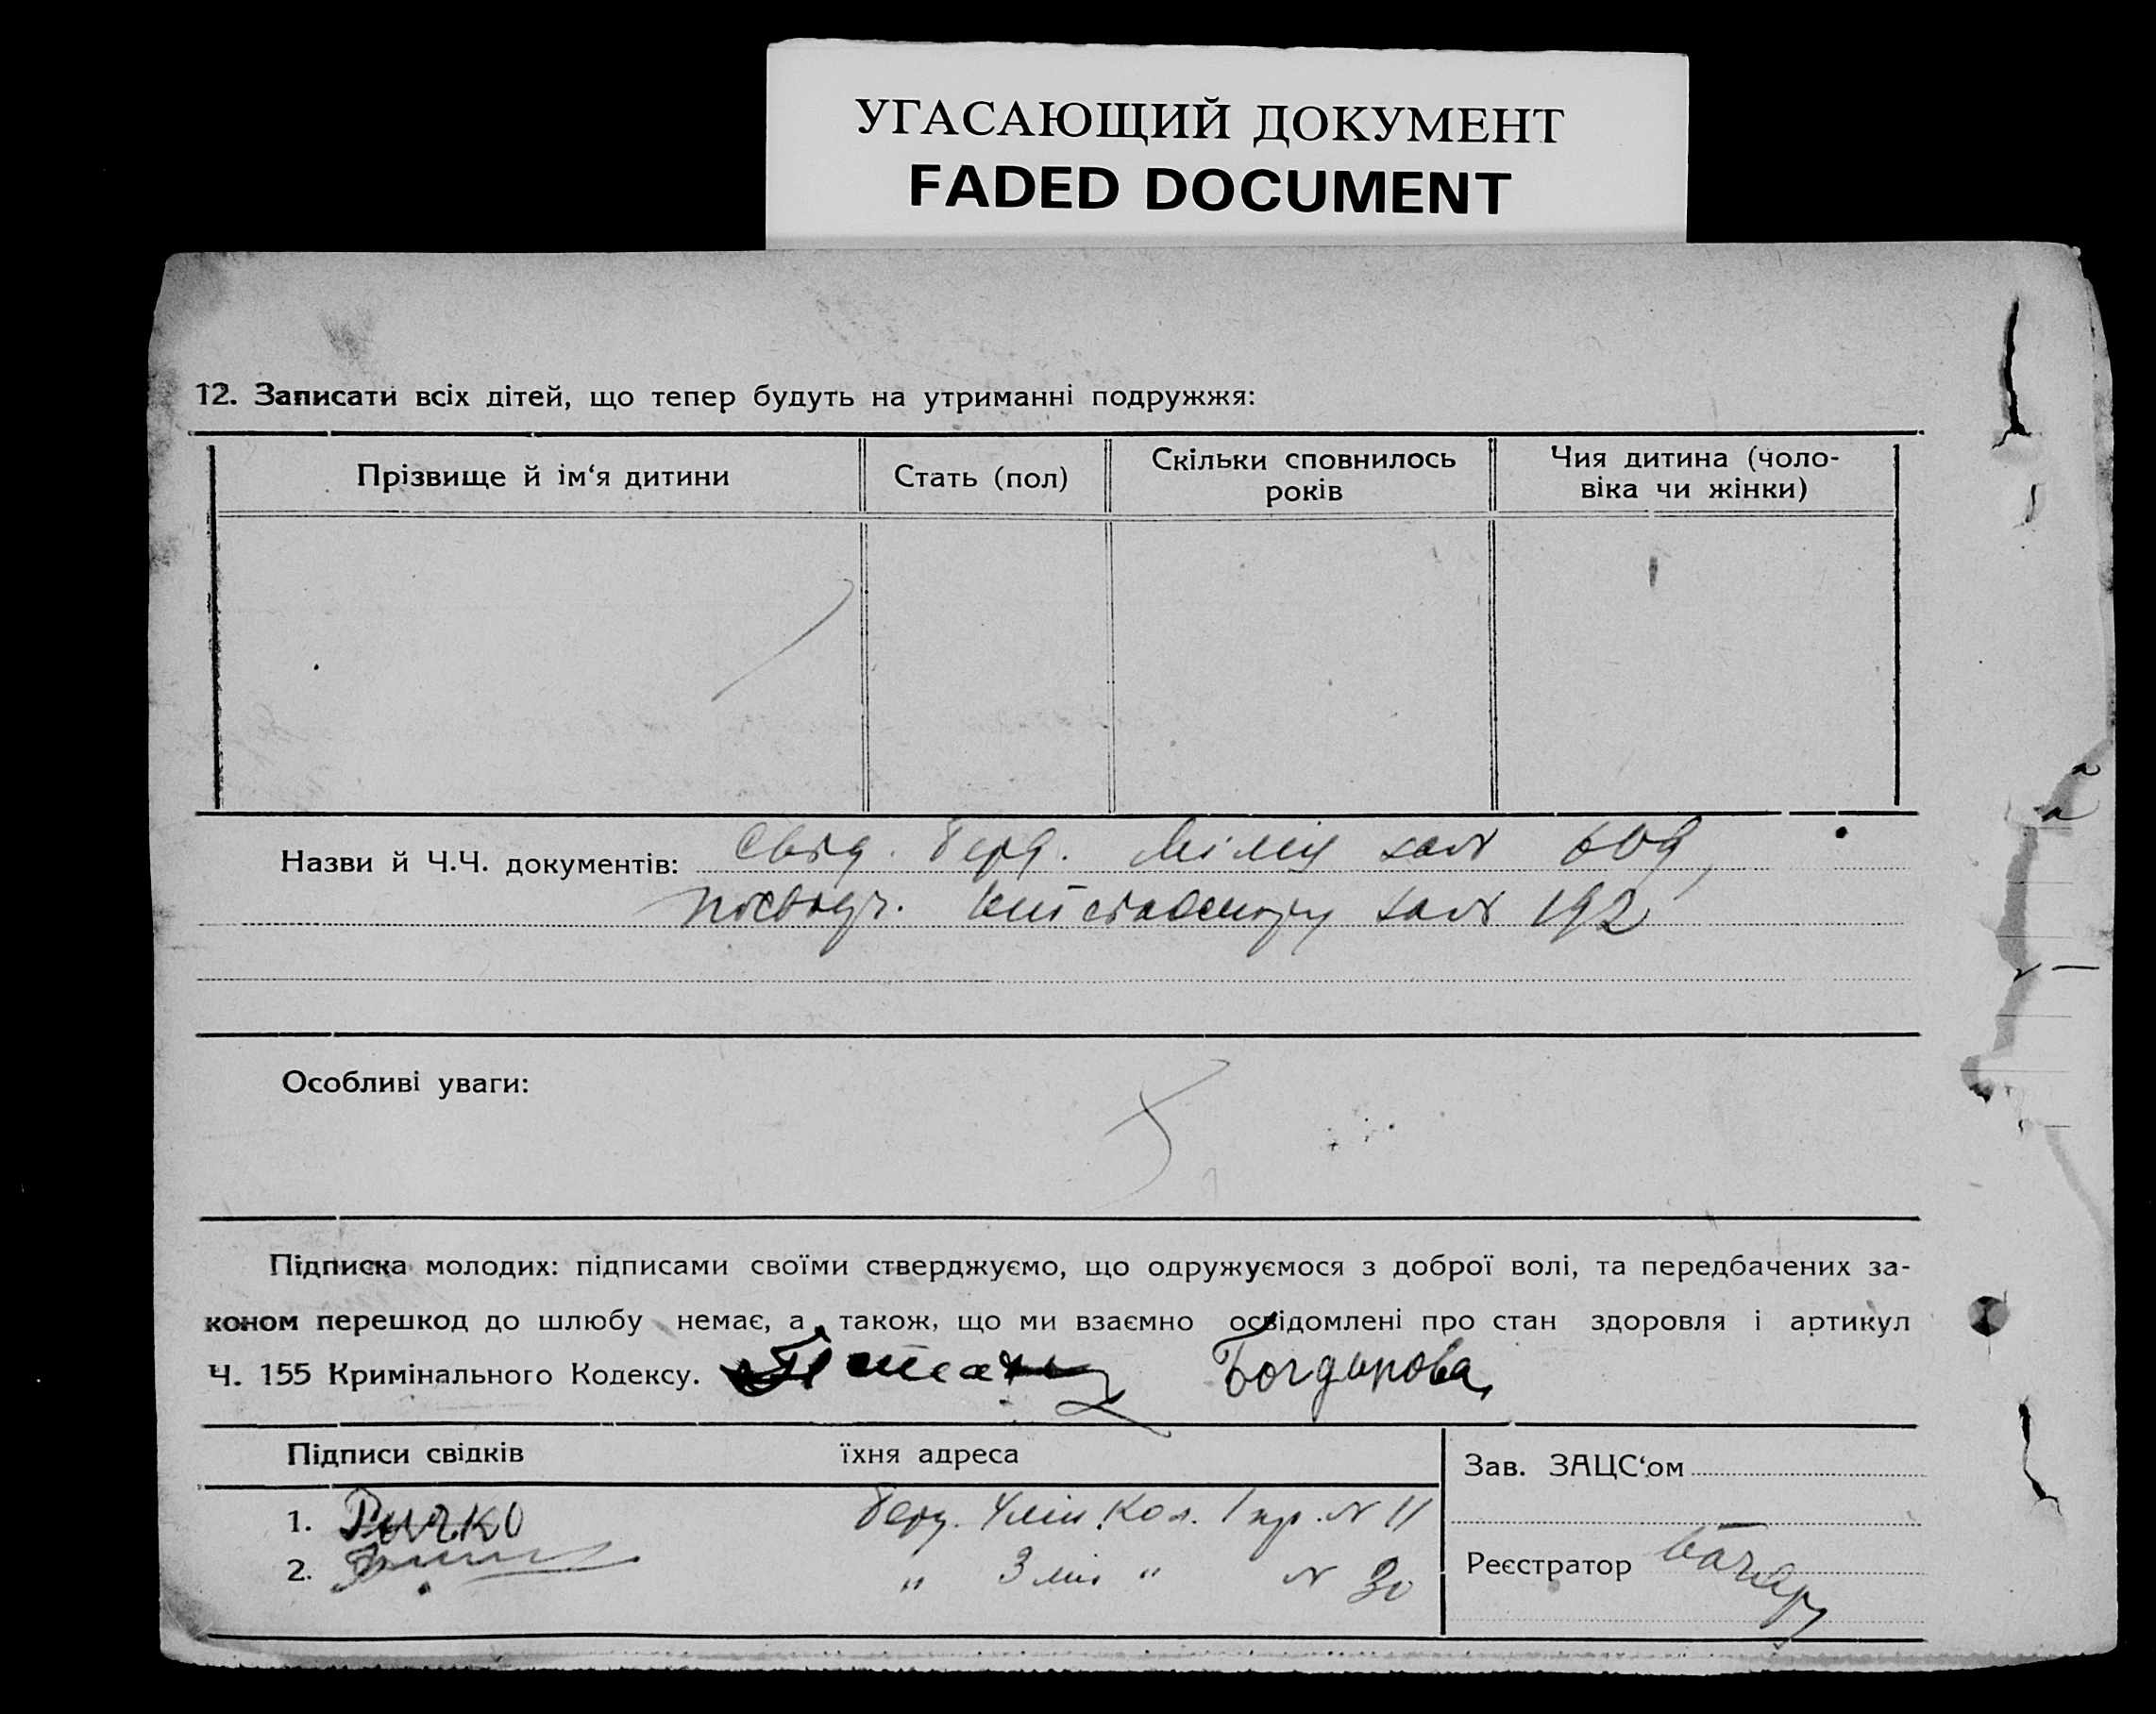 УГАСАЮЩИЙ ДОКУМЕНТ
FADED DOCUMENT
12. Записати всіх дітей, що тепер будуть на утриманні подружжя:
Прізвище й ім‘я дитини
Стать (пол)
Скільки сповнилось
років
Чия дитина (чоло-
віка чи жінки)
Назви й Ч.Ч. документів: Свід. Берд. за № 609,
посвідч. за № 192
Особливі уваги:
Підписка молодих: підписами своїми стверджуємо, що одружуємося з доброї волі, та передбачених за-
коном перешкод до шлюбу немає, а також, що ми взаємно освідомлені про стан здоровля і артикул
Ч. 155 Кримінального Кодексу.
Підписи свідків
їхня адреса
Зав. ЗАЦС‘ом
1. Ричко Берд. 4 лін. Кол. 1 пр. № 11
2. " 3 лін " № 30
Реєстратор